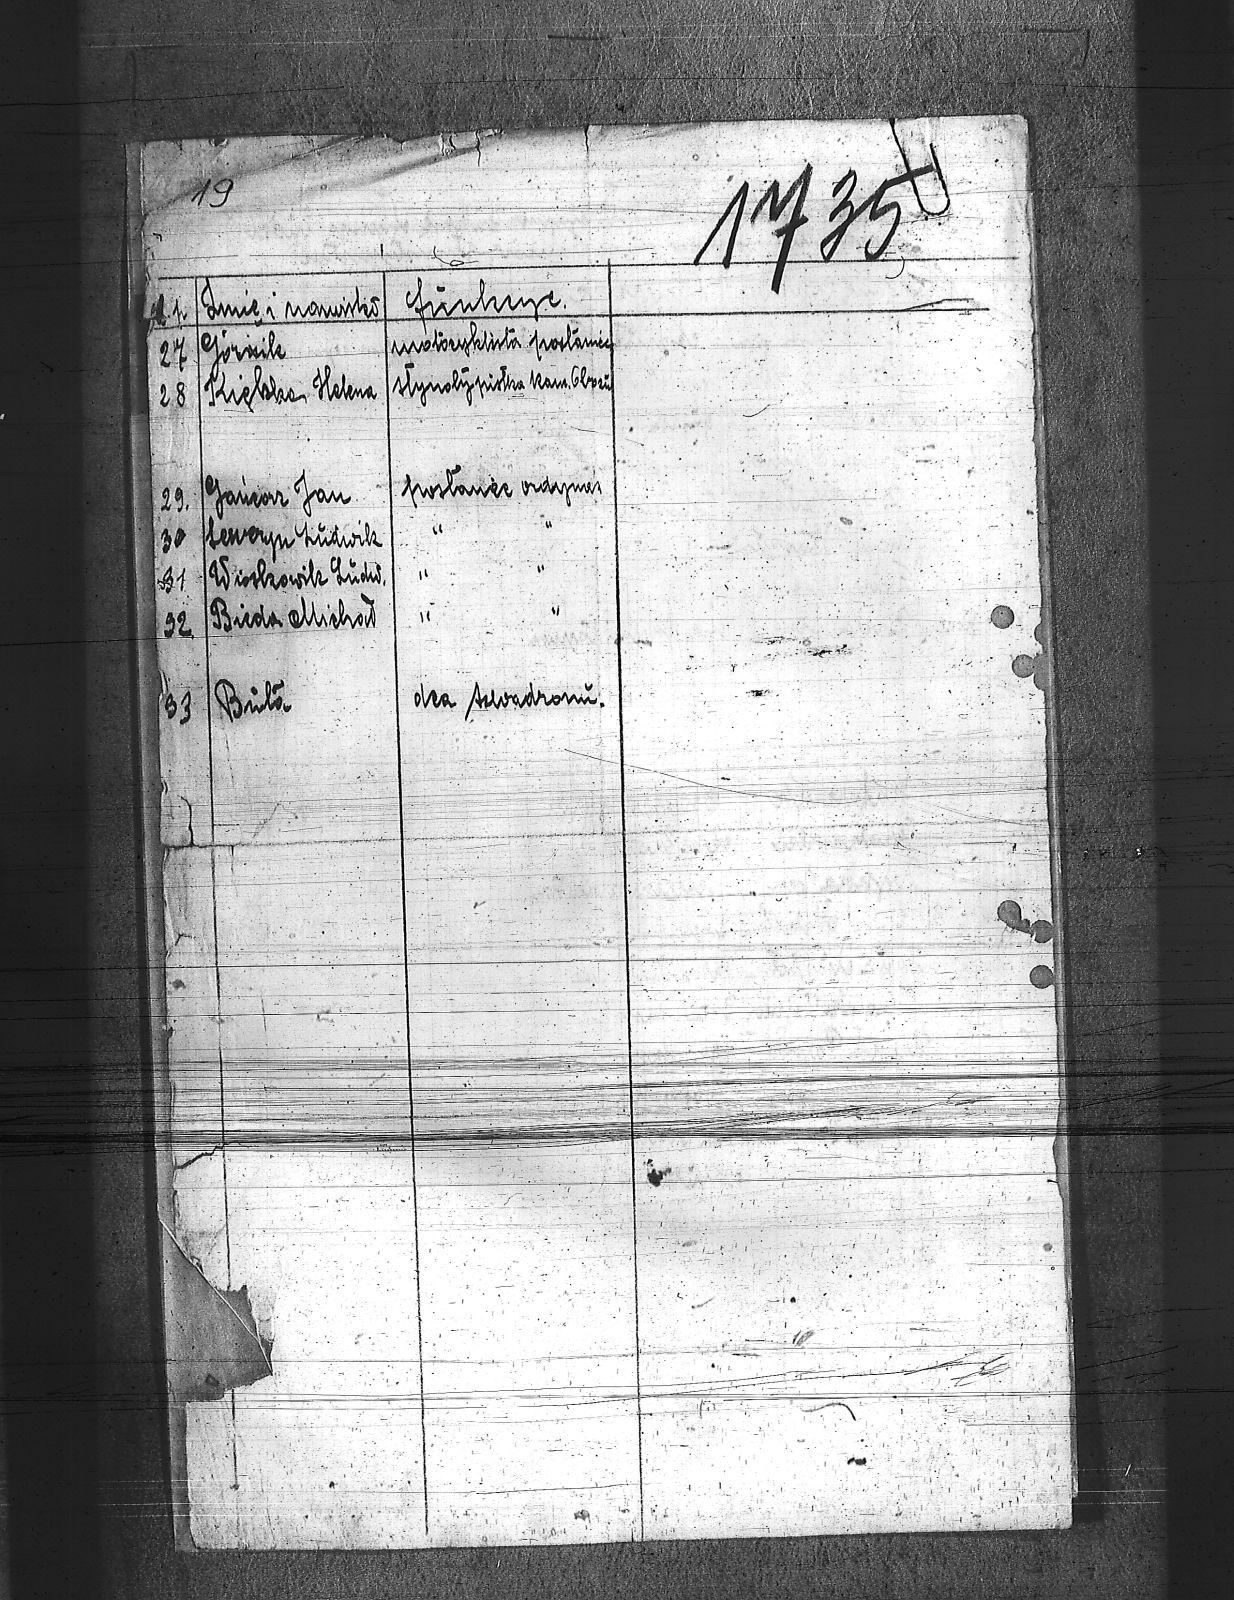 19
1735
L. p. Imię i nazwisko funkcye.
27 Górnik motocyklista posłaniec
28 Helena stynotypistka Kom. Obozu
29. Jan posłaniec ordynans
30 Seweryn Ludwik " "
31 Wioskowik Ludw. " "
32 Bieda Michał " "
33 Buła dca szwadronu.